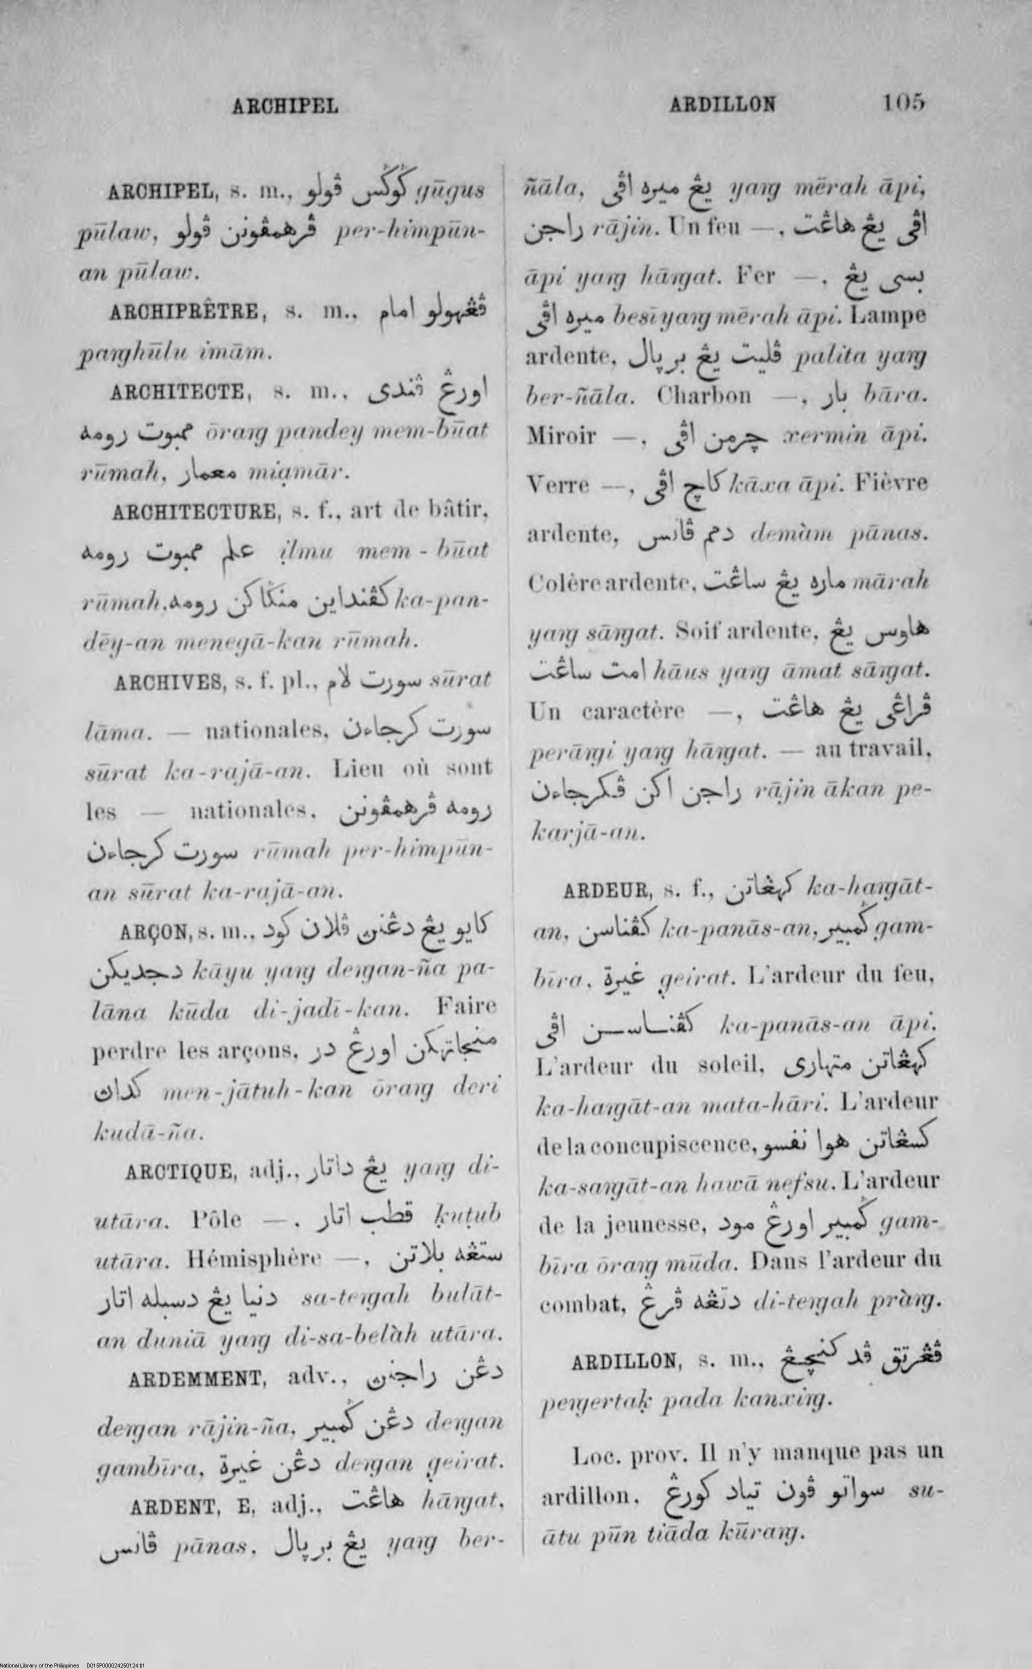 ARCHIPEL
ARDILLON 105
ARCHIPEL, s. m., ڬوڬس ڤولو gūgus
pūlaw, ڤرهمڤونن ڤولو per-himpūn-
an pūlaw.
ARCHIPRÊTRE, s. m., ڤڠهولو امام
paŋghūlu imām.
ARCHITECTE, s. m., اورڠ ڤندى
ممبوت رومه ōraŋ pandey mem-būat
rūmah, معمار miạmār.
ARCHITECTURE, s. f., art de bâtir,
علم ممبوت رومه ịlmu mem-būat
rūmah, كڤنداين منڬاكن رومه ka-pan-
dēy-an menegā-kan rūmah.
ARCHIVES, s. f. pl., سورت لام sūrat
lāma. — nationales, سورت كرجاءن
sūrat ka-rajā-an. Lieu où sont
les — nationales, رومه ڤرهمڤونن
سورت كرجاءن rūmah per-himpūn-
an sūrat ka-rajā-an.
ARÇON, s. m., كايو يڠ دڠنن ڤلان كود
دجديكن kāyu yaŋ deŋan-ña pa-
lāna kūda di-jadī-kan. Faire
perdre les arçons, منجاتهكن اورڠ در
كداڽ men-jātuh-kan ōraŋ deri
kudā-ña.
ARCTIQUE, adj., يڠ داتار yaŋ di-
utāra. Pôle —, قطب اتار ḳuṭub
utāra. Hémisphère —, ستڠه بلاتن
دنيا يڠ دسبله اتار sa-teŋah bulāt-
an duniā yaŋ di-sa-belàh utāra.
ARDEMMENT, adv., دڠن راجنڽ
deŋan rājin-ña, دڠن ڬمبير deŋan
gambīra, دڠن غيرة deŋan geirat.
ARDENT, E, adj., هاڠت hāŋat,
ڤانس pānas, يڠ برڽال yaŋ ber-
ñāla, يڠ ميره اڤى yaŋ mērah āpi,
راجن rājin. Un feu —, اڤى يڠ هاڠت
āpi yaŋ hāŋat. Fer —, بسى يڠ
ميره اڤى besī yaŋ mērah āpi. Lampe
ardente, ڤليت يڠ برڽال palita yaŋ
ber-ñāla. Charbon —, بار bāra.
Miroir —, چرمن اڤى xermin āpi.
Verre —, كاچ اڤى kāxa āpi. Fièvre
ardente, دمم ڤانس demàm pānas.
Colère ardente, ماره يڠ ساڠت mārah
yaŋ sāŋat. Soif ardente, هاوس يڠ
امت ساڠت hāus yaŋ āmat sāŋat.
Un caractère —, ڤراڠى يڠ هاڠت
perāŋi yaŋ hāŋat. — au travail,
راجن اكن ڤكرجاءن rājin ākan pe-
karjā-an.
ARDEUR, s. f., كهڠاتن ka-haŋāt-
an, كڤناسن ka-panās-an, ڬمبير gam-
bīra, غيرة geirat. L'ardeur du feu,
كڤناسن اڤى ka-panās-an āpi.
L'ardeur du soleil, كهڠاتن متهارى
ka-haŋāt-an mata-hāri. L'ardeur
de la concupiscence, كسڠاتن هوا نفسو
ka-saŋāt-an hawā nefsu. L'ardeur
de la jeunesse, ڬمبير اورڠ مود gam-
bīra ōraŋ mūda. Dans l'ardeur du
combat, دتڠه ڤرڠ di-teŋah pràŋ.
ARDILLON, s. m., ڤڠرتق ڤد كنچيڠ
peŋertaḳ pada kanxiŋ.
Loc. prov. Il n'y manque pas un
ardillon, سواتو ڤون تياد كورڠ su-
ātu pūn tiāda kūraŋ.
National Library of the Philippines